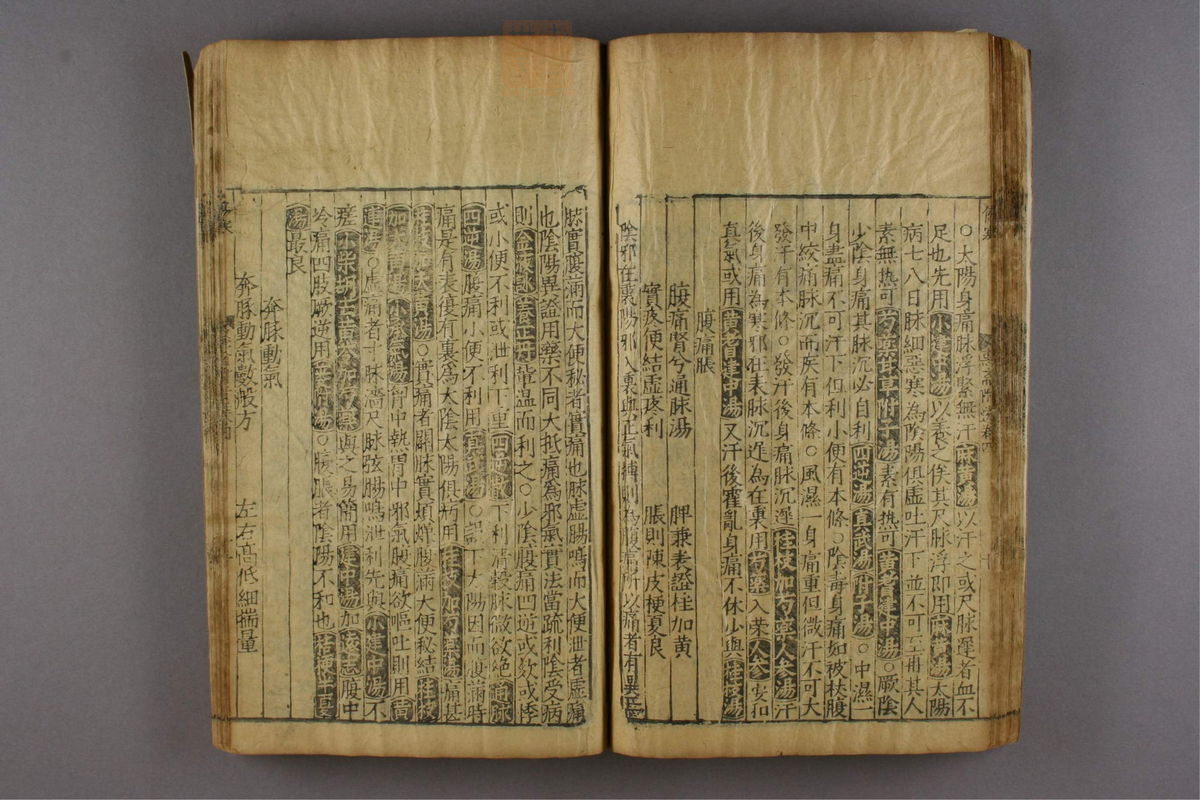 ○太陽身痛脉浮緊無汗麻黄湯以汗之或尺脉遲者血不
足也先用小建中湯以養之俟其尺脉浮即用麻黄湯太陽
病七八日脉細惡寒為陰陽俱虛吐汗下並不可至冊其人
素無熱可芍藥甘草附子湯素有熱可黄耆建中湯○厥陰
少陰身痛其脉沉必自利四逆湯真武湯附子湯○中濕一
身盡痛不可汗下但利小便有本條○陰毒身痛如被杖腹
中絞痛脉沉而疾有本條○風濕一身痛重但微汗不可大
發汗有本條○發汗後身痛脉沉遲桂枝加芍藥人参湯汗
後身痛為寒邪在表脉沉遲為在裏用芍藥入荣人参安和
真氣或用黄耆建中湯又汗後霍亂身痛不休少與桂枝湯
腹痛脹
腹痛腎兮通脉湯 脾兼表證桂加黄
實疼便結虛疼利 脹則陳皮梗夏良
陰邪在裏陽邪入裏與正氣搏則為腹痛所以痛者有異
脉實腹滿而大便秘者實痛也脉虛腸鳴而大便泄者虛痛
也陰陽異證用藥不同大抵痛為邪氣貫法當疏利陰受病
則温而利之○少陰腹痛四逆或欬或悸
或小便不利或泄利下重四逆散下利清穀脉微欲絶通脉
四逆湯腹痛小便不利用真武湯○誤下太陽因而腹滿時
痛是有表復有裏為太陰太陽俱病用桂枝加芍藥湯痛甚
桂枝加大黄湯○實痛者關脉實煩燥腹病大便秘結桂枝
加大黄湯小承氣湯胃中熱胃中邪氣腹痛欲嘔吐則用黄
連湯○虛痛者寸脉濇尺脉弦腸鳴泄利先與小建中湯不
瘥小柴胡去黄芩加芍藥與之易簡用建中湯加遠志腹中
冷痛四肢厥逆用附湯○腹脹者陰陽不和也桔梗半夏
湯最良
奔豚動氣
奔豚動氣數般方 左右高低細揣量